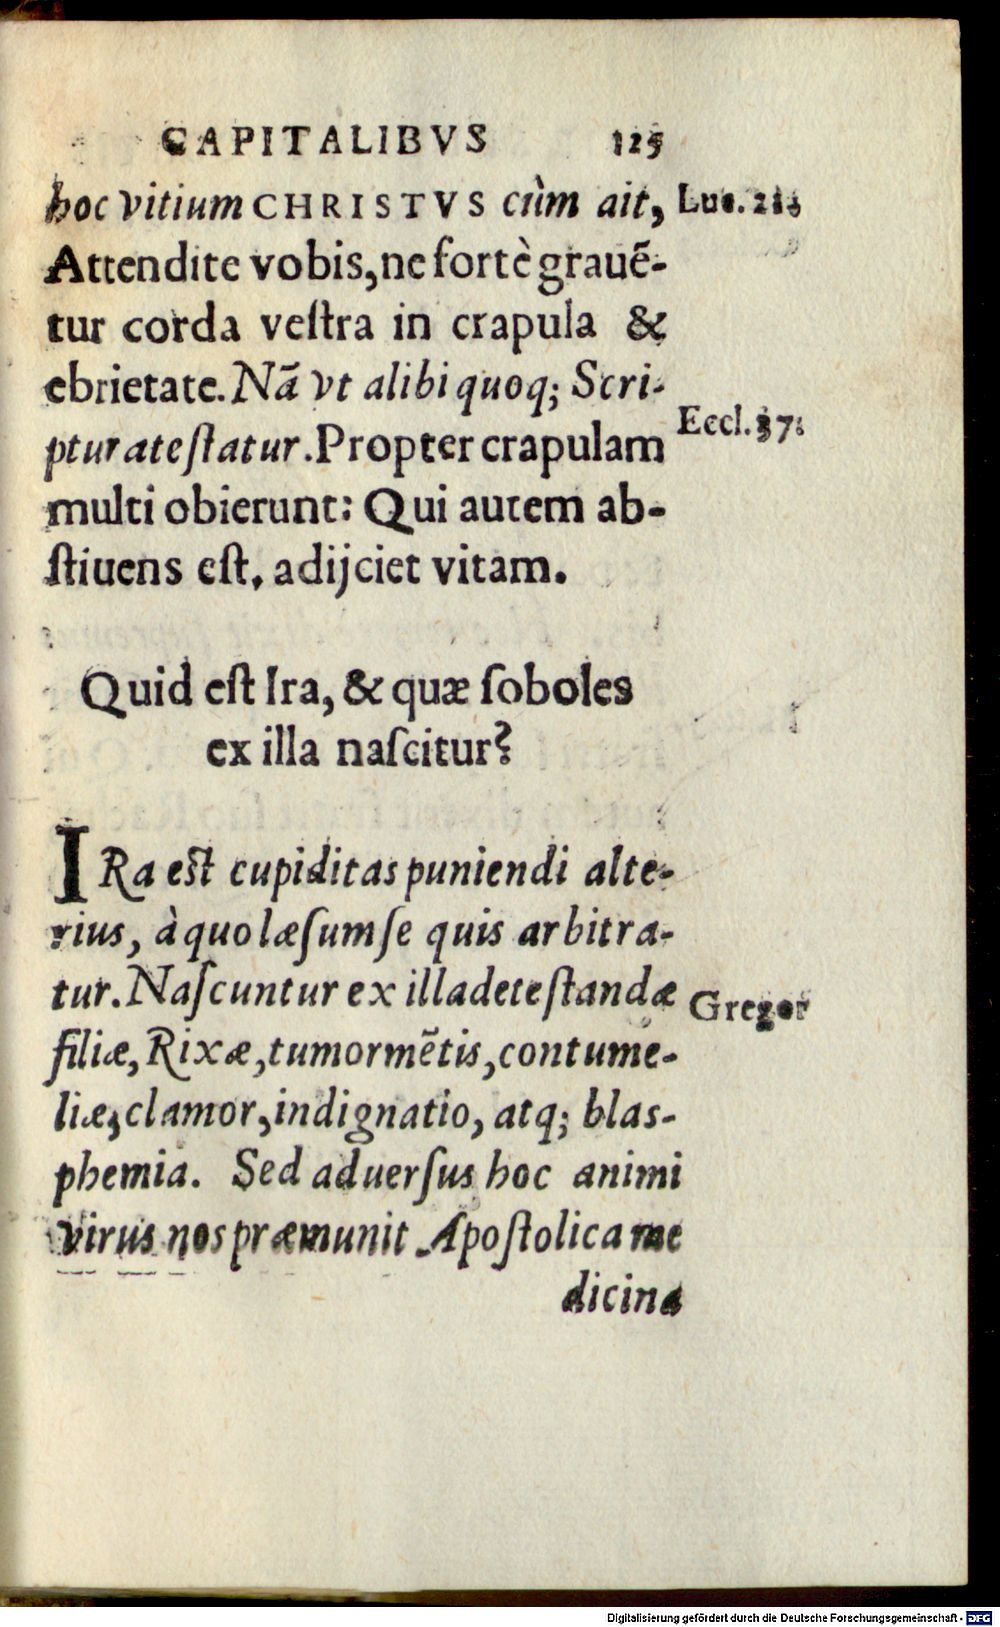 CAPITALIBVS 125
hoc vitium CHRISTVS cùm ait, Luc. 21.
Attendite vobis, ne fortè grauẽ-
tur corda veſtra in crapula &
ebrietate. Nã vt alibi quoq; Scri-
ptura teſtatur. Propter crapulam Eccl. 37.
multi obierunt: Qui autem ab-
ſtiuens eſt, adijciet vitam.
Quid eſt Ira, & quæ ſoboles
ex illa naſcitur?
IRa eſt cupiditas puniendi alte-
rius, à quo læſum ſe quis arbitra-
tur. Naſcuntur ex illa deteſtandæ Gregor
filiæ, Rixæ, tumor mẽtis, contume-
liæ, clamor, indignatio, atq; blas-
phemia. Sed aduerſus hoc animi
virus nos præmunit Apoſtolica me
dicina
Digitalisierung gefördert durch die Deutsche Forschungsgemeinschaft - DFG